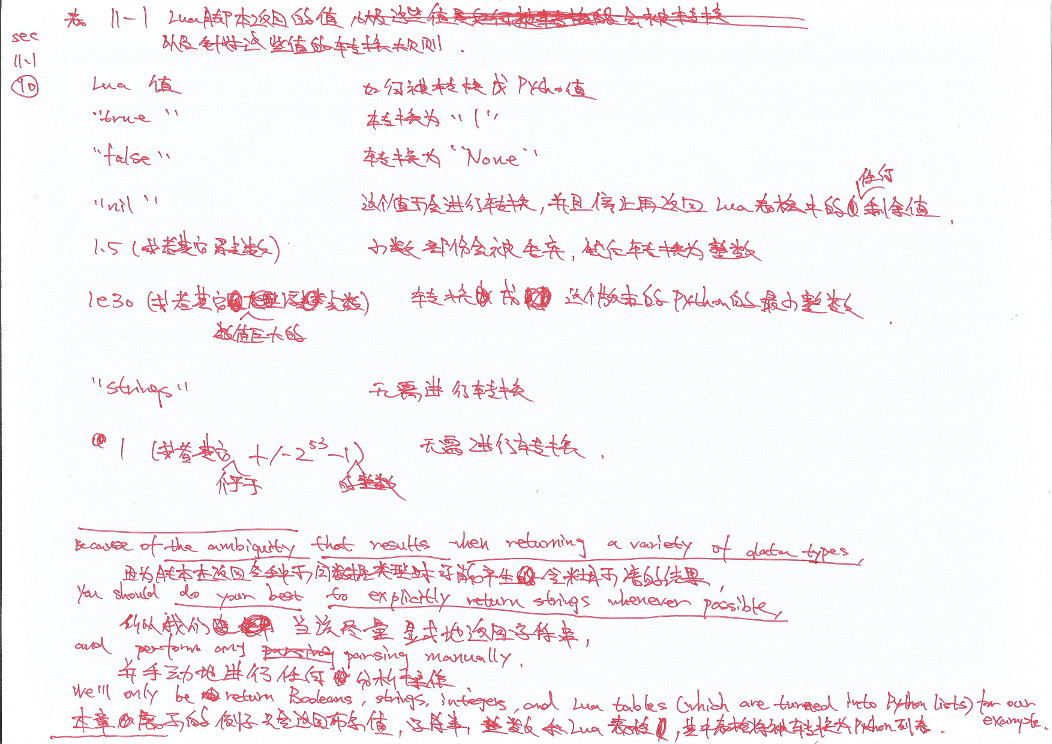 表 11-1 Lua脚本返回的值,以及这些值
以及针对这些值的转换规则.
sec
11-1
Lua 值 如何被转换成Python值
"true" 转换为 "1"
"false" 转换为 "None"
任何
"nil" 这个值不会进行转换,并且停止再返回 Lua 表格中的剩余值.
1.5 (或者其它浮点数) 小数部份会被丢弃,然后转换为整数
1e30 (或者其它 浮点数) 转换成 这个版本的Python的最小整数.
数值巨大的
"strings" 无需进行转换
1 (或者其它 +/-2^53-1) 无需进行转换.
介乎于
的整数
Because of the ambiguity that results when returning a variety of data types,
因为脚本在返回各种不同数据类型时可能产生 令人 的结果,
You should do your best to explicitly return strings whenever possible,
所以我们 应该尽量显式地返回字符串,
and perform any parsing manually.
并手动地进行任何分析操作
We'll only be return Booleans, strings, integers, and Lua tables (which are turned into Python lists) for our
example.
本章展示的例子只会返回布尔值,字符串,整数和Lua表格,其中表格将被转换为Python列表.